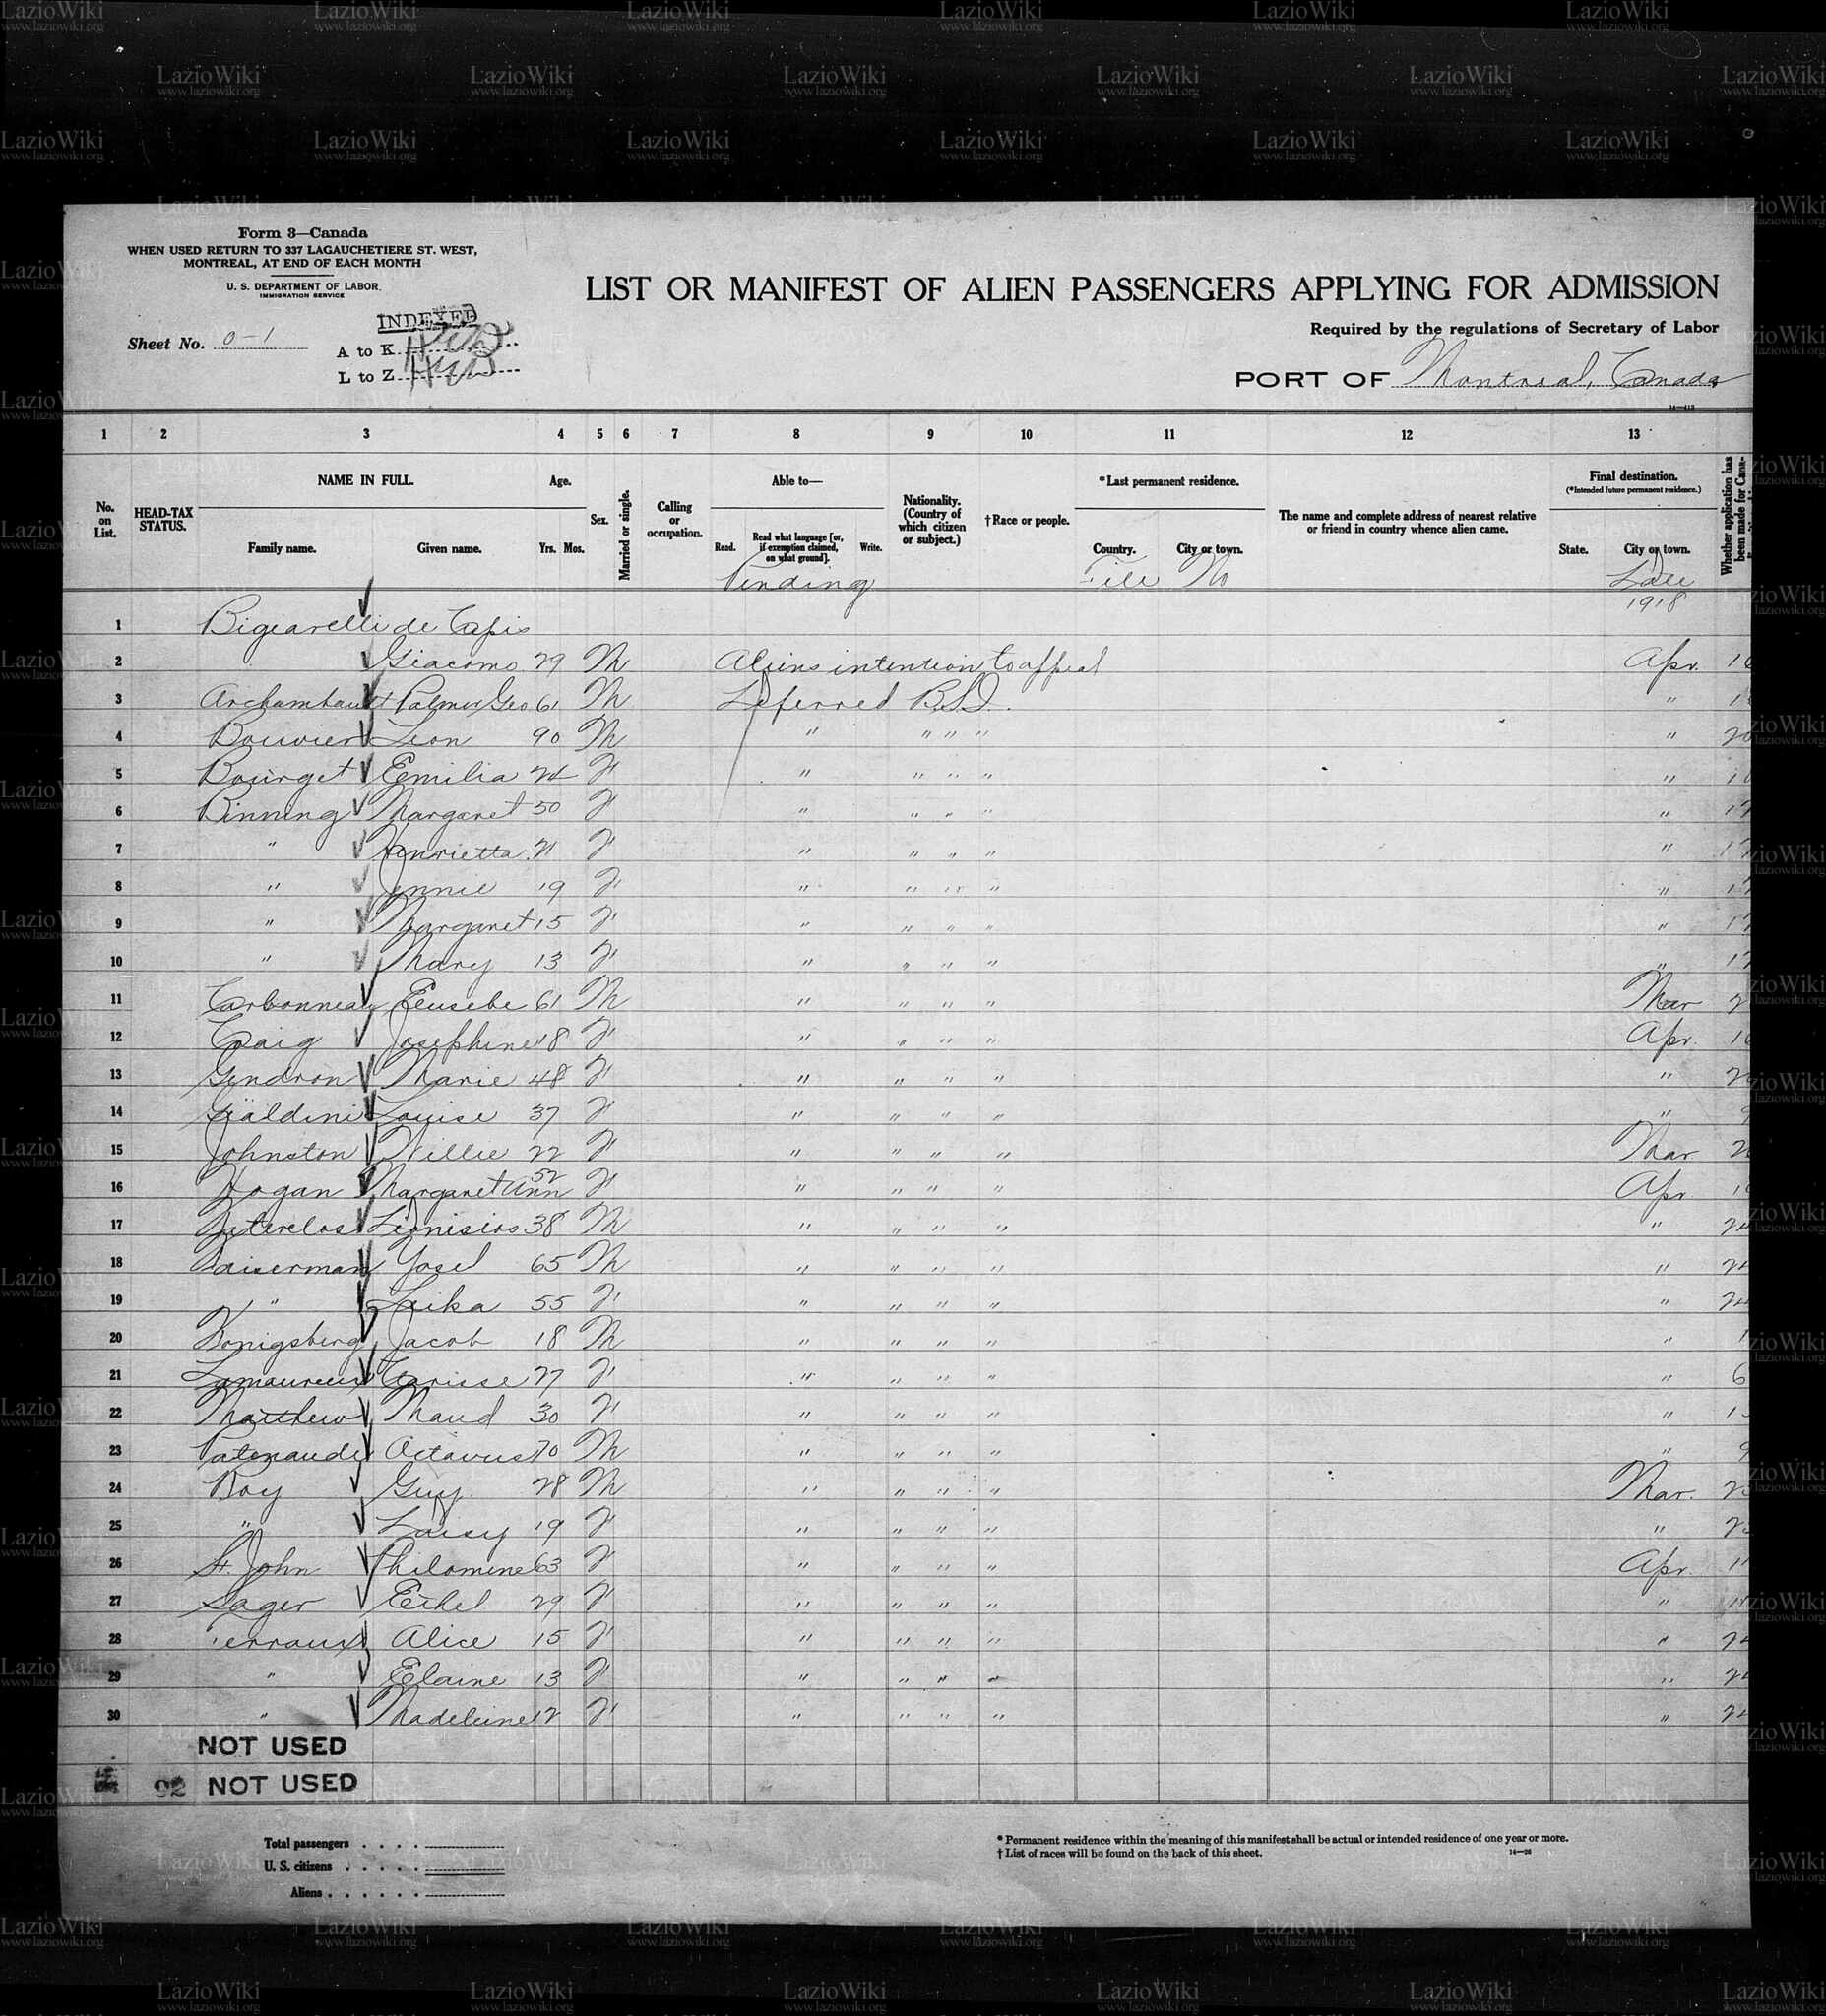 LazioWiki
www.laziowiki.org
Form 3—Canada
WHEN USED RETURN TO 337 LAGAUCHETIERE ST. WEST,
MONTREAL, AT END OF EACH MONTH
U. S. DEPARTMENT OF LABOR
IMMIGRATION SERVICE
LIST OR MANIFEST OF ALIEN PASSENGERS APPLYING FOR ADMISSION
Required by the regulations of Secretary of Labor
INDEXED
Sheet No. 0-1
A to K
L to Z
PORT OF Montreal, Canada
1 2 3 4 5 6 7 8 9 10 11 12 13
No. on List.
HEAD-TAX STATUS.
NAME IN FULL.
Family name. Given name.
Age.
Yrs. Mos.
Sex.
Married or single.
Calling or occupation.
Able to—
Read. Read what language [or, if exemption claimed, on what ground]. Write.
Nationality. (Country of which citizen or subject.)
†Race or people.
*Last permanent residence.
Country. City or town.
The name and complete address of nearest relative or friend in country whence alien came.
Final destination.
(*Intended future permanent residence.)
State. City or town.
Whether application has been made for Cana-
Pending File No Date
1918
1 Bigiarelli de Capis
2 Giacomo 29 M Aliens intention to appeal Apr. 16
3 Archambault Palmer Geo 61 M Deferred B.S.I. "
4 Bouvier Leon 90 M " " " " " 20
5 Bourget Emilia 24 F " " " " "
6 Binning Margaret 50 F " " " " " 17
7 " Henrietta 21 F " " " " " 17
8 " Jennie 19 F " " " " " 17
9 " Margaret 15 F " " " " " 17
10 " Mary 13 F " " " " " 17
11 Carbonneau Eusebe 61 M " " " " Mar 2
12 Craig Josephine 18 F " " " " Apr. 16
13 Gendron Marie 48 F " " " " " 2
14 Louise 37 F " " " " " 9
15 Johnston Willie 22 F " " " " Mar 2
16 Hogan Margaret Ann 52 F " " " " Apr.
17 Dionisios 38 M " " " " " 24
18 Yosel 65 M " " " " " 24
19 " Leika 55 F " " " " " 24
20 Konigsberg Jacob 18 M " " " " " 1
21 Lamoureux Clarisse 27 F " " " " " 6
22 Matthew Maud 30 F " " " " " 1
23 Patenaude Octavus 70 M " " " " " 9
24 Roy Guy. 28 M " " " " Mar. 2
25 " Daisy 19 F " " " " " 2
26 St. John Philomine 63 F " " " " Apr. 11
27 Sager Ethel 29 F " " " " " 11
28 Terraux Alice 15 F " " " " " 24
29 " Elaine 13 F " " " " " 24
30 " Madeleine 12 F " " " " " 24
NOT USED
92 NOT USED
Total passengers
U. S. citizens
Aliens
* Permanent residence within the meaning of this manifest shall be actual or intended residence of one year or more.
† List of races will be found on the back of this sheet.